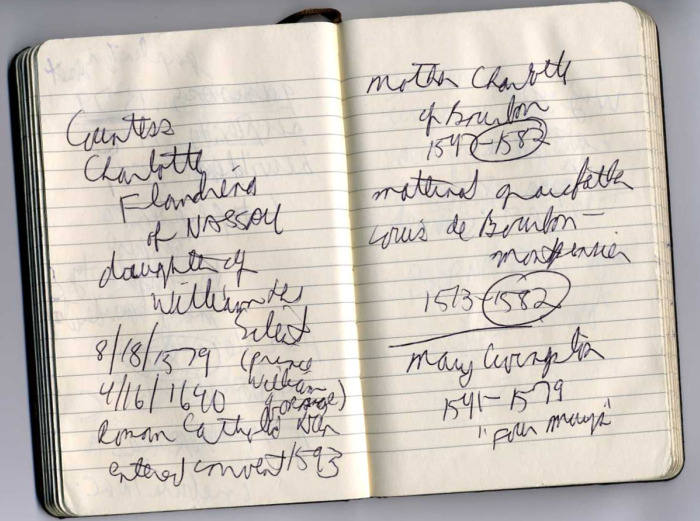 Countess
Charlotte
Flandrina
of NASSAU
daughter of
William the
Silent
8/18/1579 (prince
William
4/16/1640 of orange)
Roman Catholic Nun
entered convent 1593
mother Charlotte
of Bourbon
1547-1582
maternal grandfather
Louis de Bourbon-
montpensier
1513-1582
Mary Livingston
1541-1579
"Four marys"